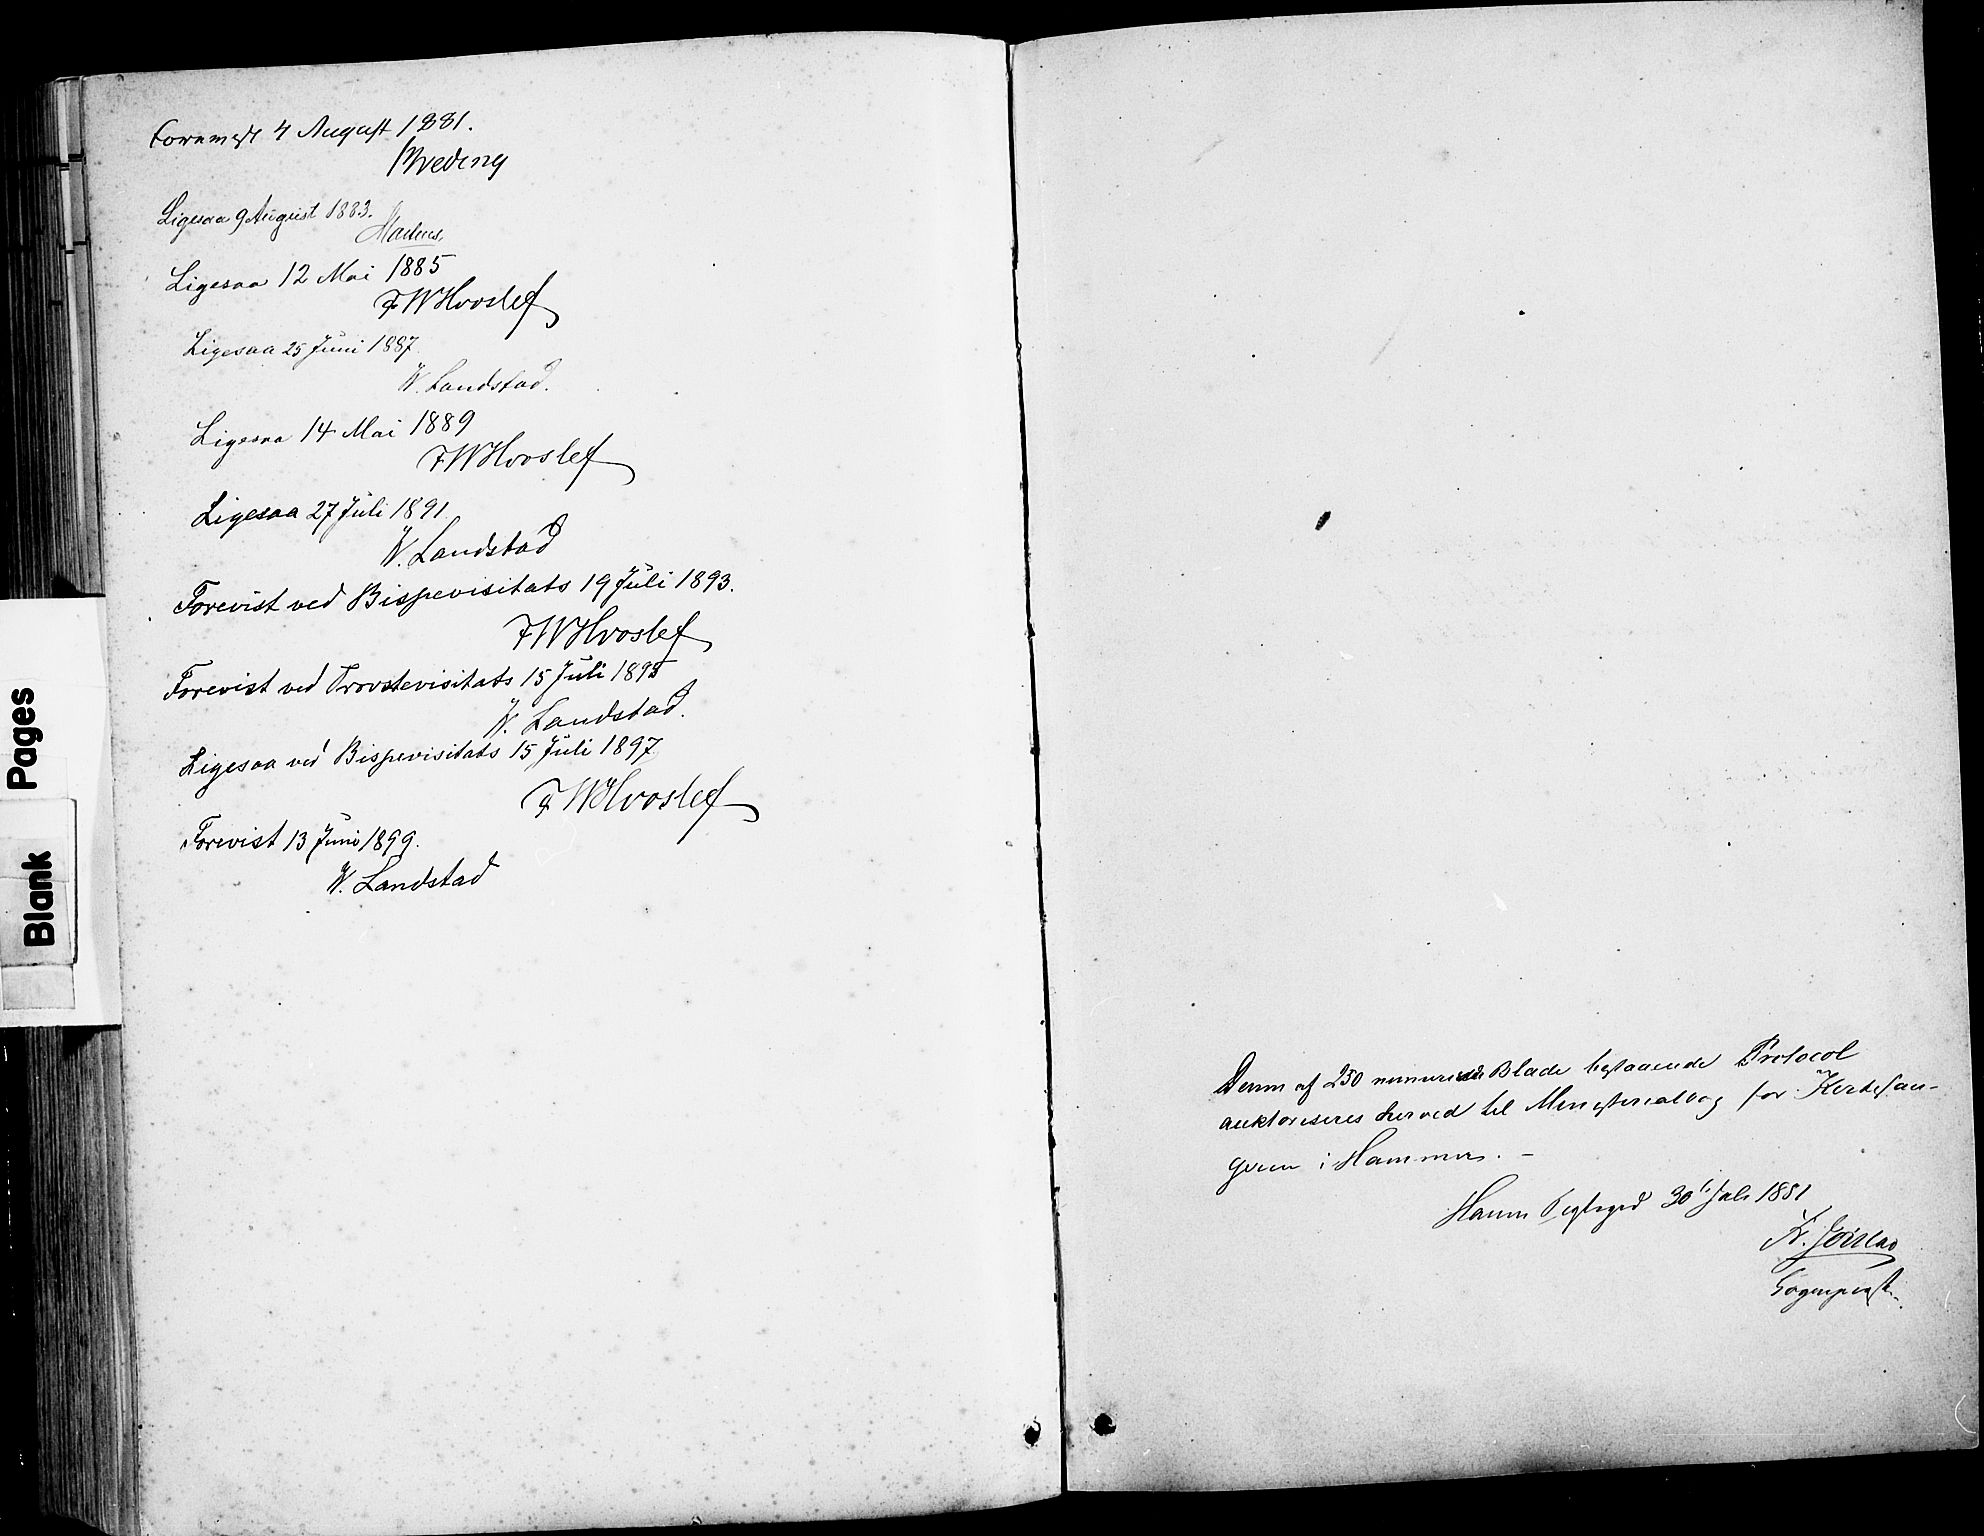 Forevist 4 August 1881.
Ligesaa 9 August 1883.
Ligesaa 12 Mai 1885
FWHvoslef
Ligesaa 25 Juni 1887
W. Landstad.
Ligesaa 14 Mai 1889
FWHvoslef
Ligesaa 27 Juli 1891
W. Landstad
Forevist ved Bispevisitats 19 Juli 1893.
FWHvoslef
Forevist ved Provstevisitats 15 Juli 1895
W. Landstad.
Ligesaa ved Bispevisitats 15 Juli 1897
FWHvoslef
Forevist 13 Juni 1899.
W. Landstad
Blank Pages
Denne af 250 numererede Blade bestaaende Protocol
auktoriseres herved til Ministerialbog for Kirkesan-
geren i Hammer. -
Prestegd 30 Juli 1881
Sogneprest.